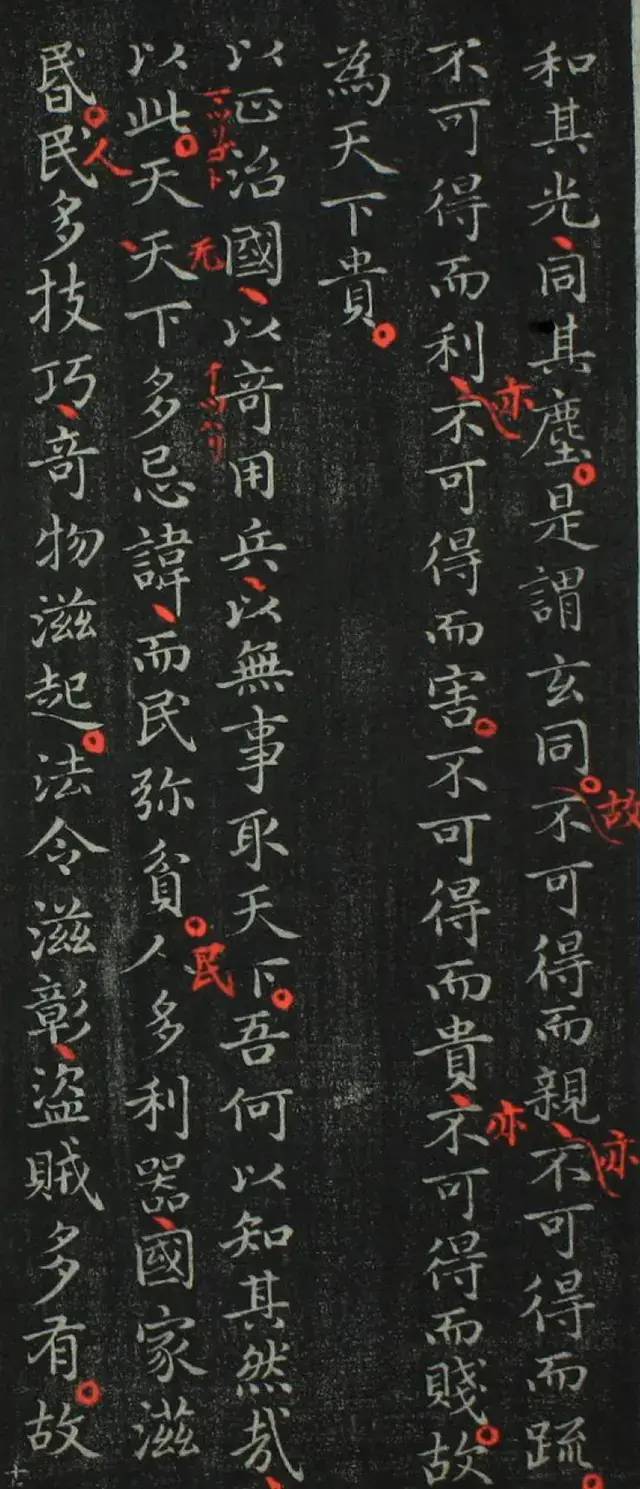 和其光同其塵是謂玄同不可得而親不可得而疏
故
亦
不可得而利不可得而害不可得而貴不可得而賤故
亦
亦
為天下貴
以正治國以竒用兵以無事取天下吾何以知其然哉
以此天天下多忌諱而民弥貧人多利器國家滋
无
民
昬民多技巧竒物滋起法令滋彰盜賊多有故
人